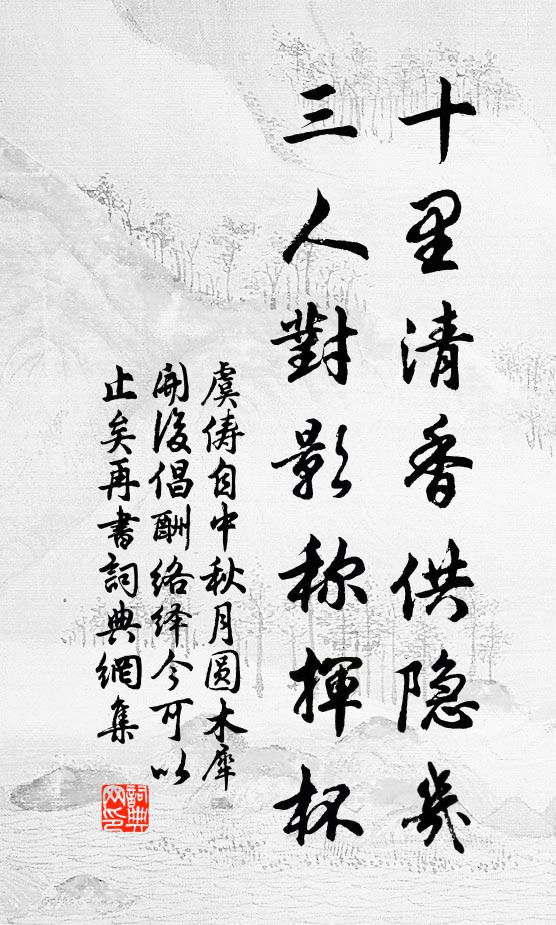 十里清香供隐几
三人對影称揮杯
虞俦自中秋月圆木犀
開後倡酬络绎今可以
止矣再書詞典網集
詞典网印